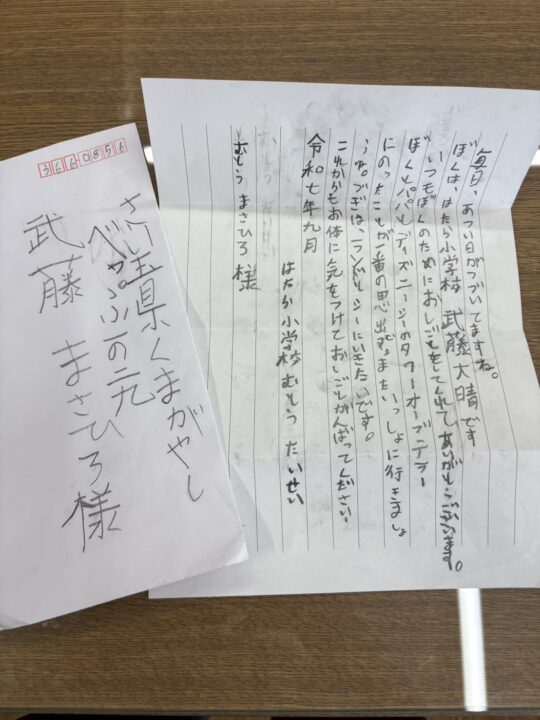 3660856
さい玉県くまがやし
べっぷ二の二九
武藤 まさひろ様
毎日、あつい日がつづいてますね。
ぼくは、はたら小学校 武藤大晴です
いつもぼくのためにおしごとをしてくれてありがとうございます。
ぼくとパパとディズニーシーのタワーオーブテラー
にのったことが一番の思出です。またいっしょに行きましょ
うね。つぎは、ランドとシーにいきたいです。
これからもお体に気をつけておしごとがんばってください
令和七年九月
はたら小学校 むとう たいせい
むとう まさひろ 様